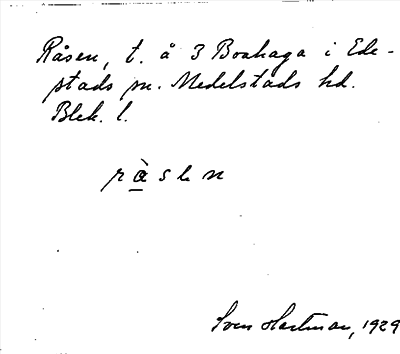 Råsen, t. å 3 Boahaga i Ede-
stads sn. Medelstads hd.
Blek. l.
rå̀sen
Sven Hartman, 1929